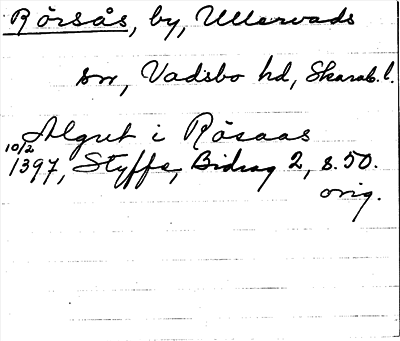 Rörsås, by, Ullervads
sn, Vadsbo hd, Skarab. l.
Algut i Rösaas
10/2 1397, Styffe, Bidrag 2, s. 50.
orig.